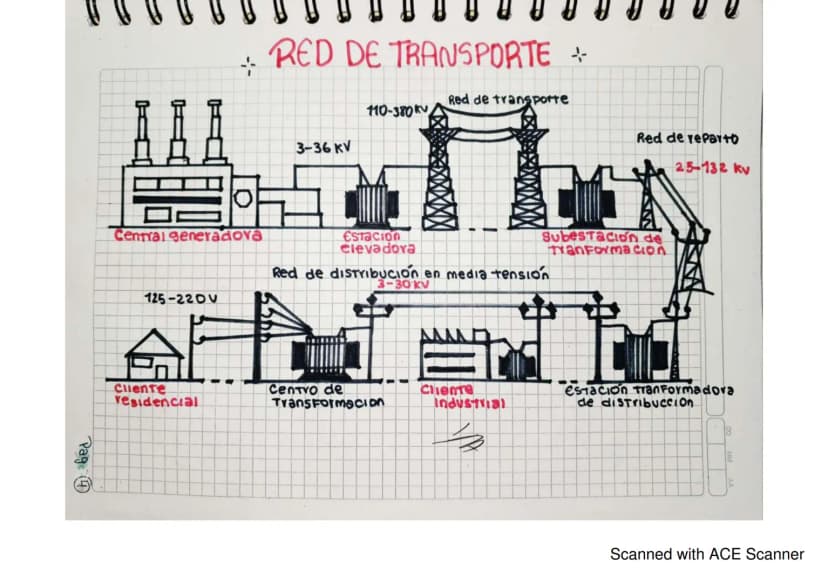 RED DE TRANSPORTE
110-380 KV
Red de transporte
3-36 KV
Red de reparto
25-132 KV
Central generadora
Estación
elevadora
Subestación de
Tranformacion
Red de distribución en media tensión
3-30 KV
125-220 V
Cliente
residencial
Centro de
Transformacion
Cliente
Industrial
Estación Tranformadora
de distribuccion
Pag: 4
Scanned with ACE Scanner